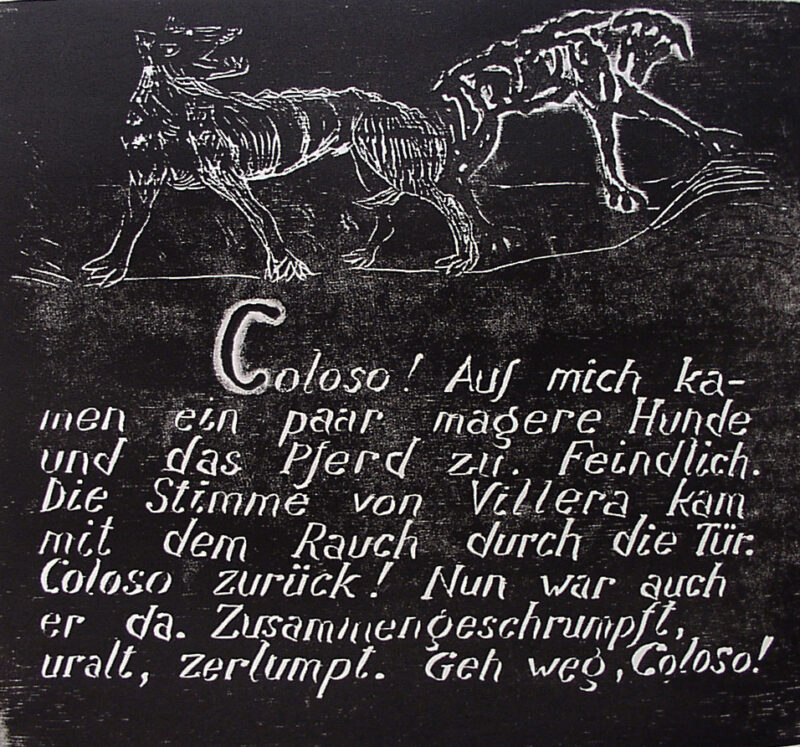 Coloso! Auf mich ka-
men ein paar magere Hunde
und das Pferd zu. Feindlich.
Die Stimme von Villera kam
mit dem Rauch durch die Tür.
Coloso zurück! Nun war auch
er da. Zusammengeschrumpft,
uralt, zerlumpt. Geh weg, Coloso!